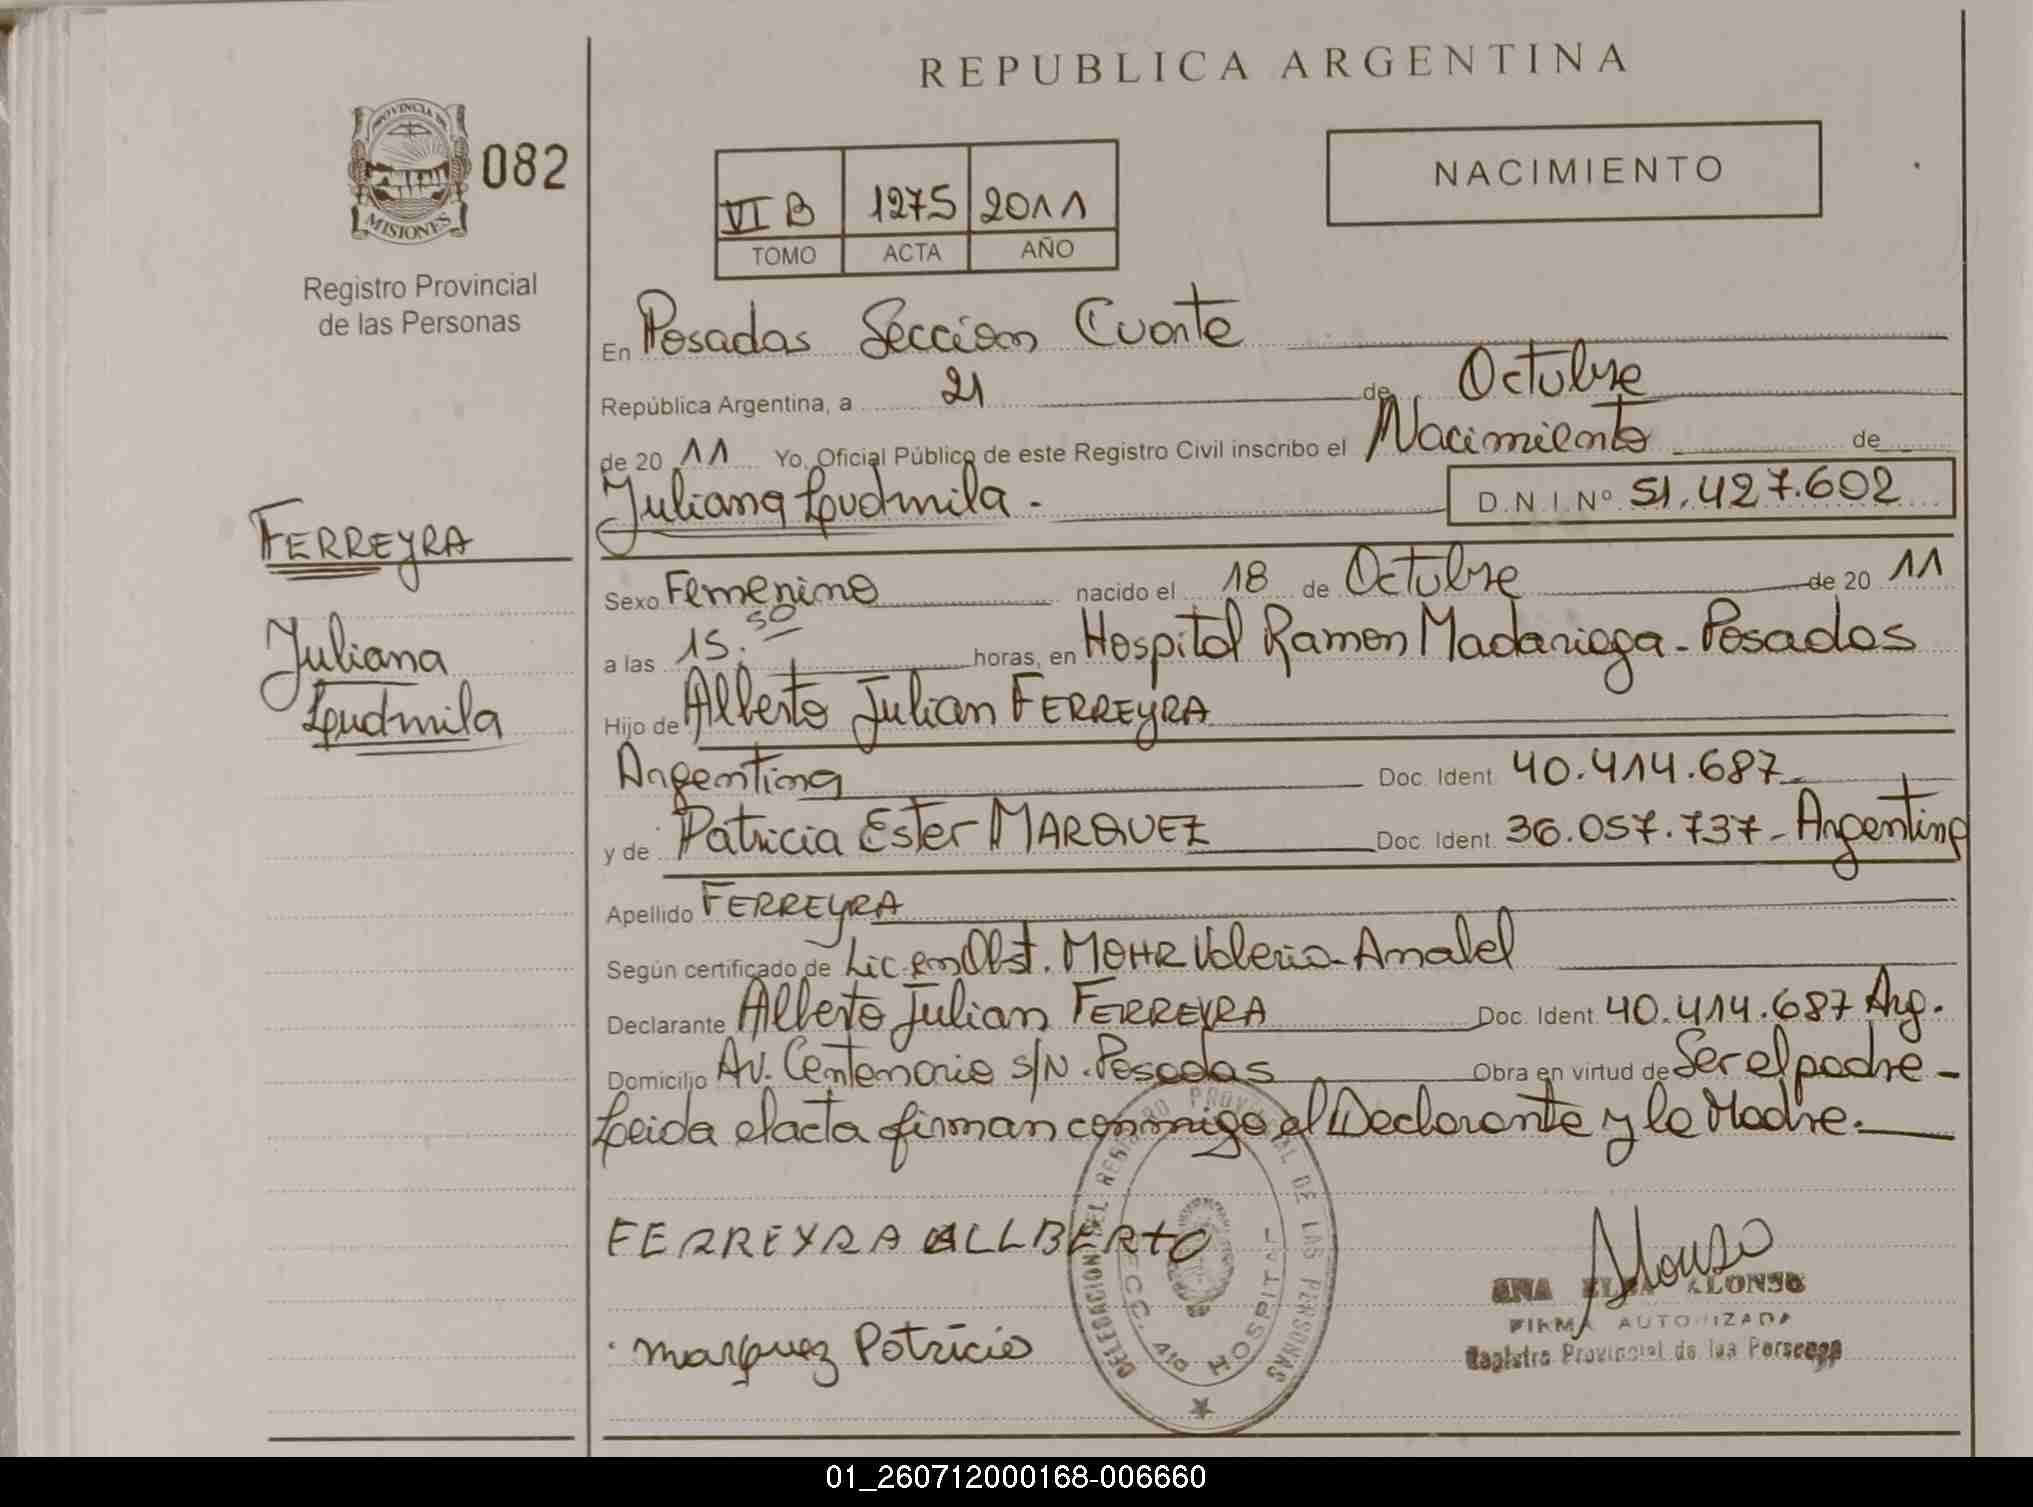 REPUBLICA ARGENTINA
PROVINCIA DE
MISIONES
082
NACIMIENTO
VI B 1275 2011
TOMO ACTA AÑO
Registro Provincial
de las Personas
En Posadas Sección Cuarta
República Argentina, a 21 de Octubre
de 20 11 Yo, Oficial Público de este Registro Civil inscribo el Nacimiento de
Juliana Ludmila.- D.N.I. Nº 51.427.602
FERREYRA
Juliana
Ludmila
Sexo Femenino nacido el 18 de Octubre de 20 11
a las 15.50 horas, en Hospital Ramon Madariaga - Posadas
Hijo de Alberto Julian FERREYRA
Argentina Doc. Ident. 40.414.687-
y de Patricia Ester MARQUEZ Doc. Ident. 36.057.737- Argentina
Apellido FERREYRA
Según certificado de Lic. en Obst. MOHR Valeria Anabel
Declarante Alberto Julian FERREYRA Doc. Ident. 40.414.687 Arg.
Domicilio Av. Centenario S/N. Posadas Obra en virtud de Ser el padre -
Leida el acta firman conmigo el Declarante y la Madre.
FERREYRA ALLBERTO
marquez Patricia
DELEGACION DEL REGISTRO PROVINCIAL DE LAS PERSONAS
SECC. 4ta HOSPITAL
Alonso
ANA ELSA ALONSO
FIRMA AUTORIZADA
Registro Provincial de las Personas
01_260712000168-006660